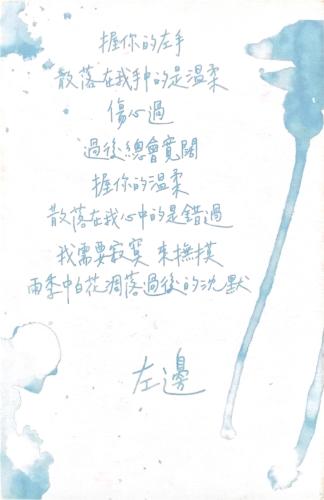 握你的左手
散落在我手中的是溫柔
傷心過
過後總會寬闊
握你的溫柔
散落在我心中的是錯過
我需要寂寞 來撫摸
雨季中白花凋落過後的沈默
左邊